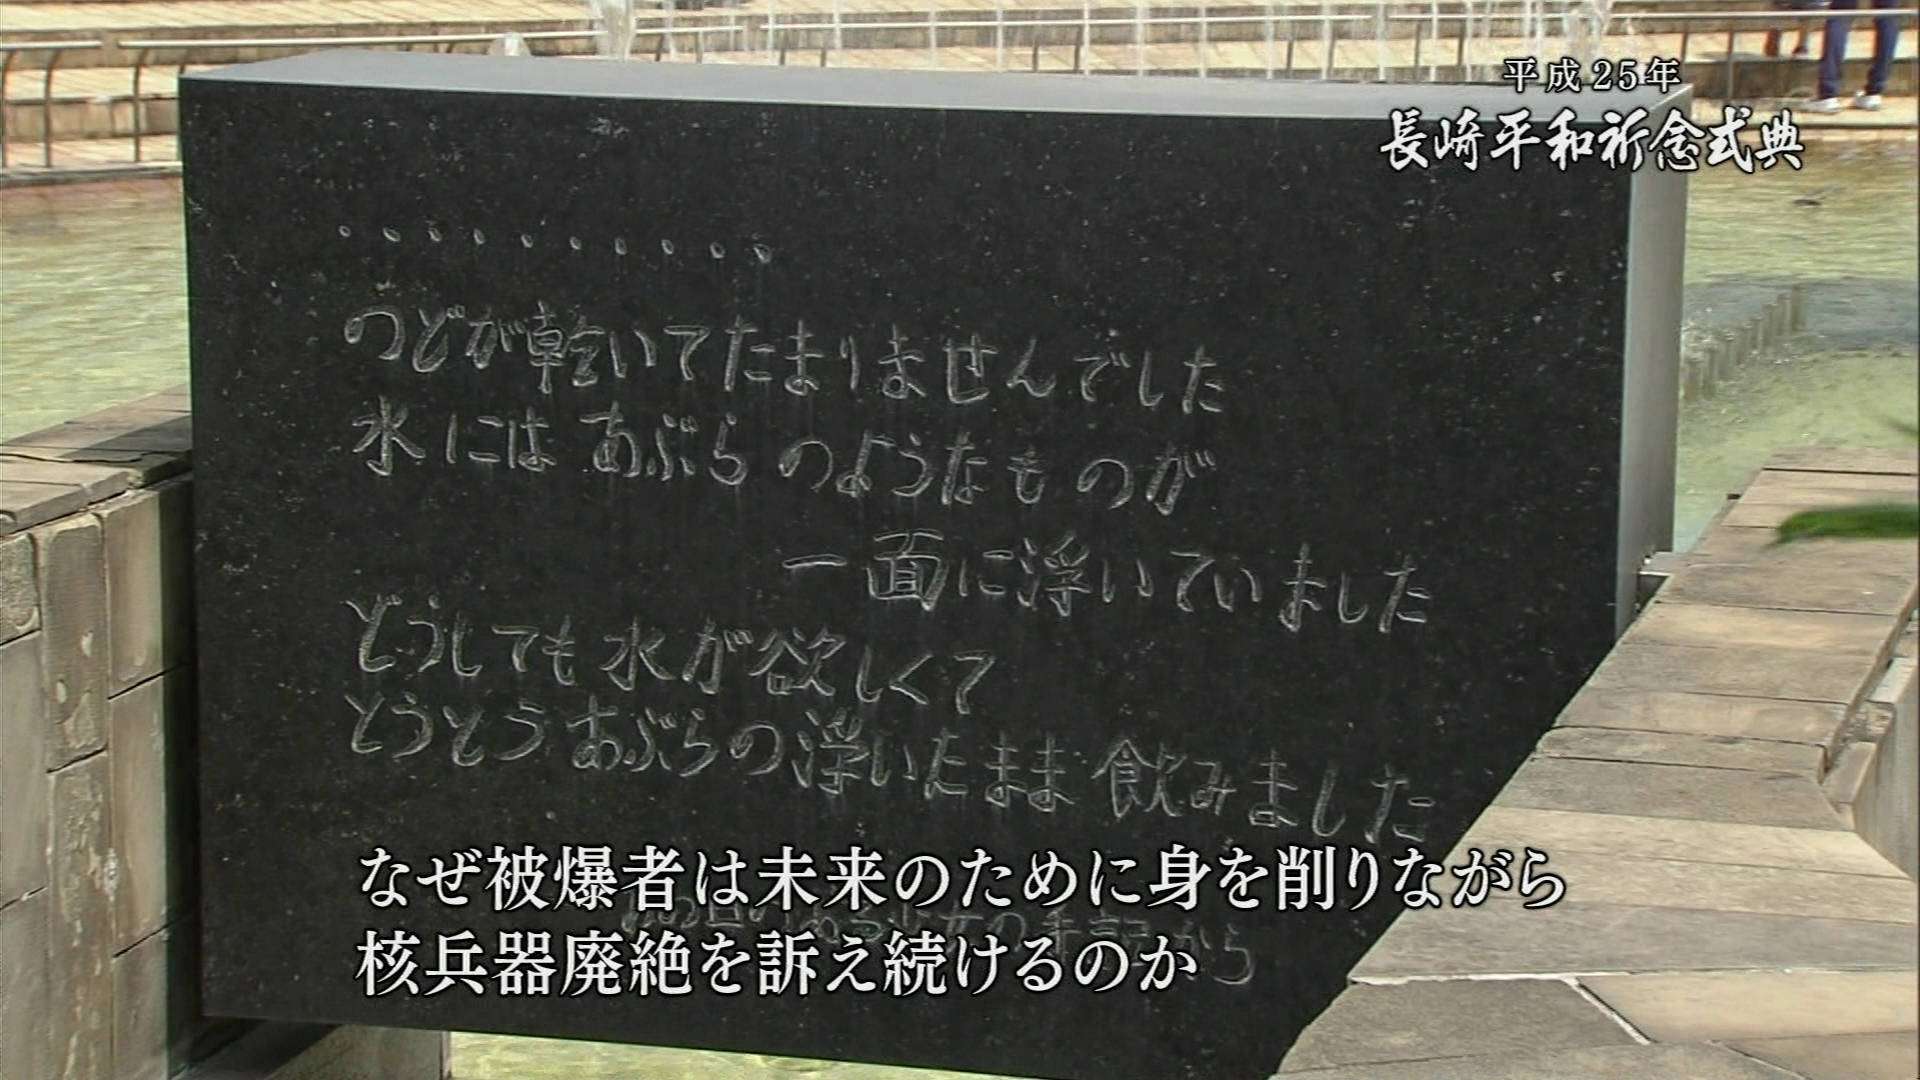 平成25年
長崎平和祈念式典
・・・・・・・・・・
のどが乾いてたまりませんでした
水にはあぶらのようなものが
一面に浮いていました
どうしても水が欲しくて
とうとうあぶらの浮いたまま飲みました
なぜ被爆者は未来のために身を削りながら
あの日のある少女の手記から
核兵器廃絶を訴え続けるのか